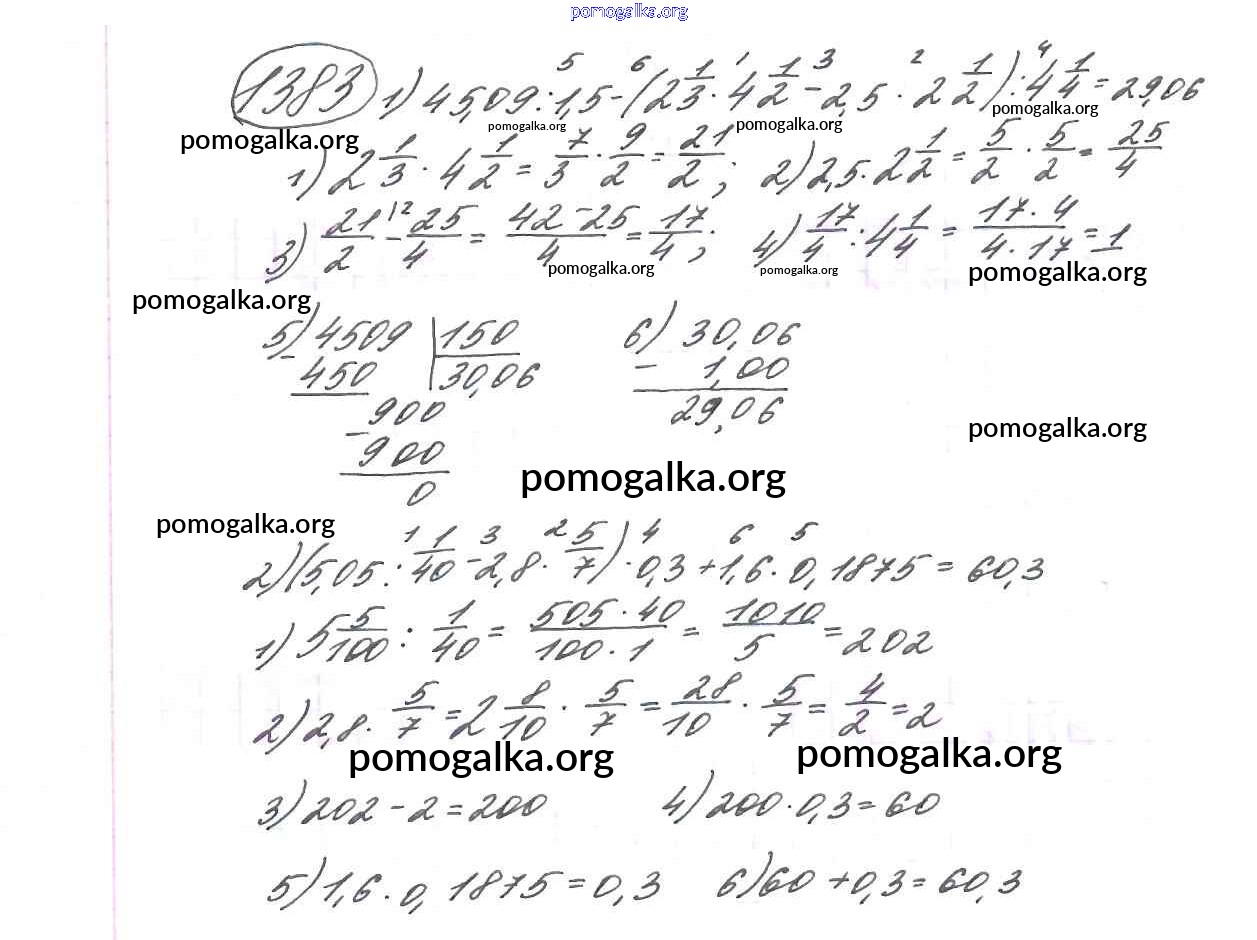 pomogalka.org
1383 1) 45,09 : 1,5 - (2 1/3 · 4 1/2 - 2,5 · 2 1/2) : 4 1/4 = 29,06
5 6 1 3 2 4
pomogalka.org pomogalka.org pomogalka.org pomogalka.org
1) 2 1/3 · 4 1/2 = 7/3 · 9/2 = 21/2 ; 2) 2,5 · 2 1/2 = 5/2 · 5/2 = 25/4
3) 21/2 \2 - 25/4 = 42 - 25/4 = 17/4 ; 4) 17/4 : 4 1/4 = 17 · 4/4 · 17 = 1
pomogalka.org pomogalka.org pomogalka.org
pomogalka.org
5) 4509 | 150 6) 30,06
- 450 | 30,06 - 1,00
- 900 29,06
900
0
pomogalka.org
pomogalka.org
pomogalka.org
1 3 2 4 6 5
2) (5,05 : 1/40 - 2,8 · 5/7) · 0,3 + 1,6 · 0,1875 = 60,3
1) 5 5/100 : 1/40 = 505 · 40/100 · 1 = 1010/5 = 202
2) 2,8 · 5/7 = 2 8/10 · 5/7 = 28/10 · 5/7 = 4/2 = 2
pomogalka.org pomogalka.org
3) 202 - 2 = 200 4) 200 · 0,3 = 60
5) 1,6 · 0,1875 = 0,3 6) 60 + 0,3 = 60,3